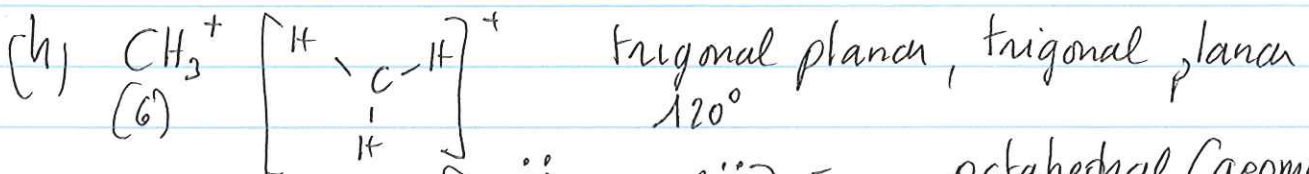 (h) CH₃⁺ [H C H H]⁺ trigonal planar, trigonal planar
(6) 120°
octahedral (geom